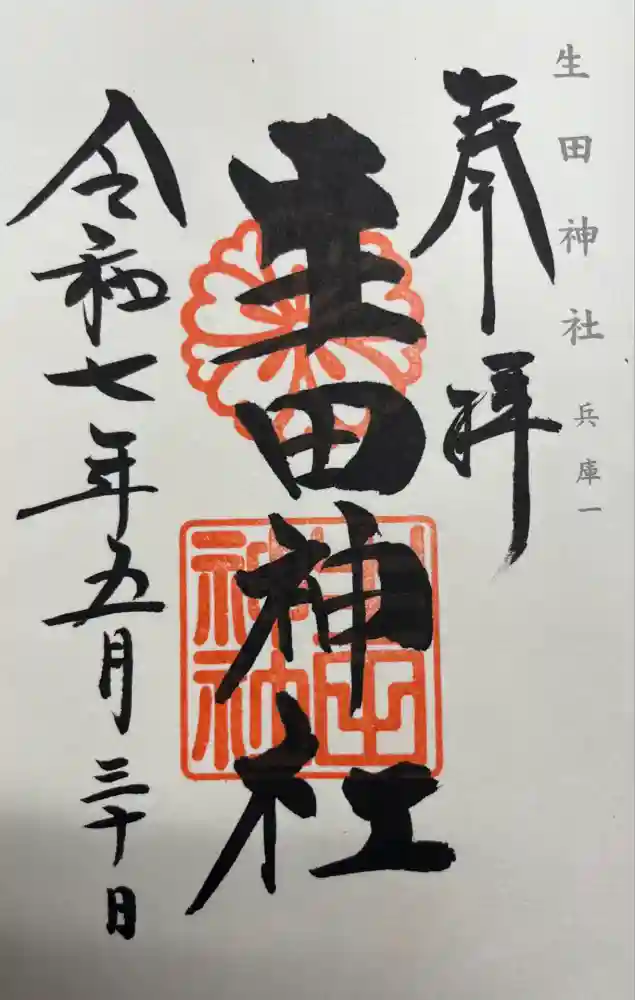 生田神社 兵庫一
奉拝
生田神社
令和七年五月三十日